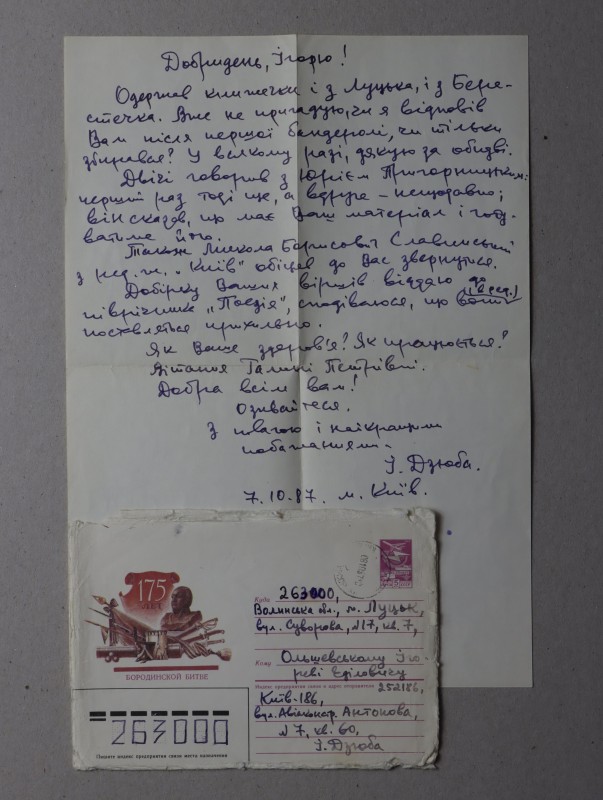 Добридень, Ігорю!
Одержав книжечки і з Луцька, і з Бере-
стечка. Вже не пригадую, чи я відповів
Вам після першої бандеролі, чи тільки
збирався? У всякому разі, дякую за обидві.
Двічі говорив з Юрієм Пригорницьким:
перший раз тоді ще, а вдруге – нещодавно;
він сказав, що має Ваш матеріал і готу-
ватиме його.
Також Микола Борисович Славинський
з ред. ж. „Київ" обіцяв до Вас звернутися.
Добірку Ваших віршів віддаю до
піврічника „Поезія", сподіваюся, що вони (в ред.)
поставляться прихильно.
Як Ваше здоров'я? Як працюється?
Вітання Галині Петрівні.
Добра всім вам!
Озивайтеся.
З повагою і найкращими
побажаннями
І. Дзюба.
7.10.87. м. Київ.
175
ЛЕТ
БОРОДИНСКОЙ БИТВЕ
Куда 263000,
Волинська обл., м. Луцьк,
вул. Суворова, №17, кв. 7,
Кому Ольшевському Іго-
реві Еділовичу
Индекс предприятия связи и адрес отправителя 252186,
Київ-186,
вул. Авіаконстр. Антонова,
№7, кв. 60,
І. Дзюба
263000
Пишите индекс предприятия связи места назначения